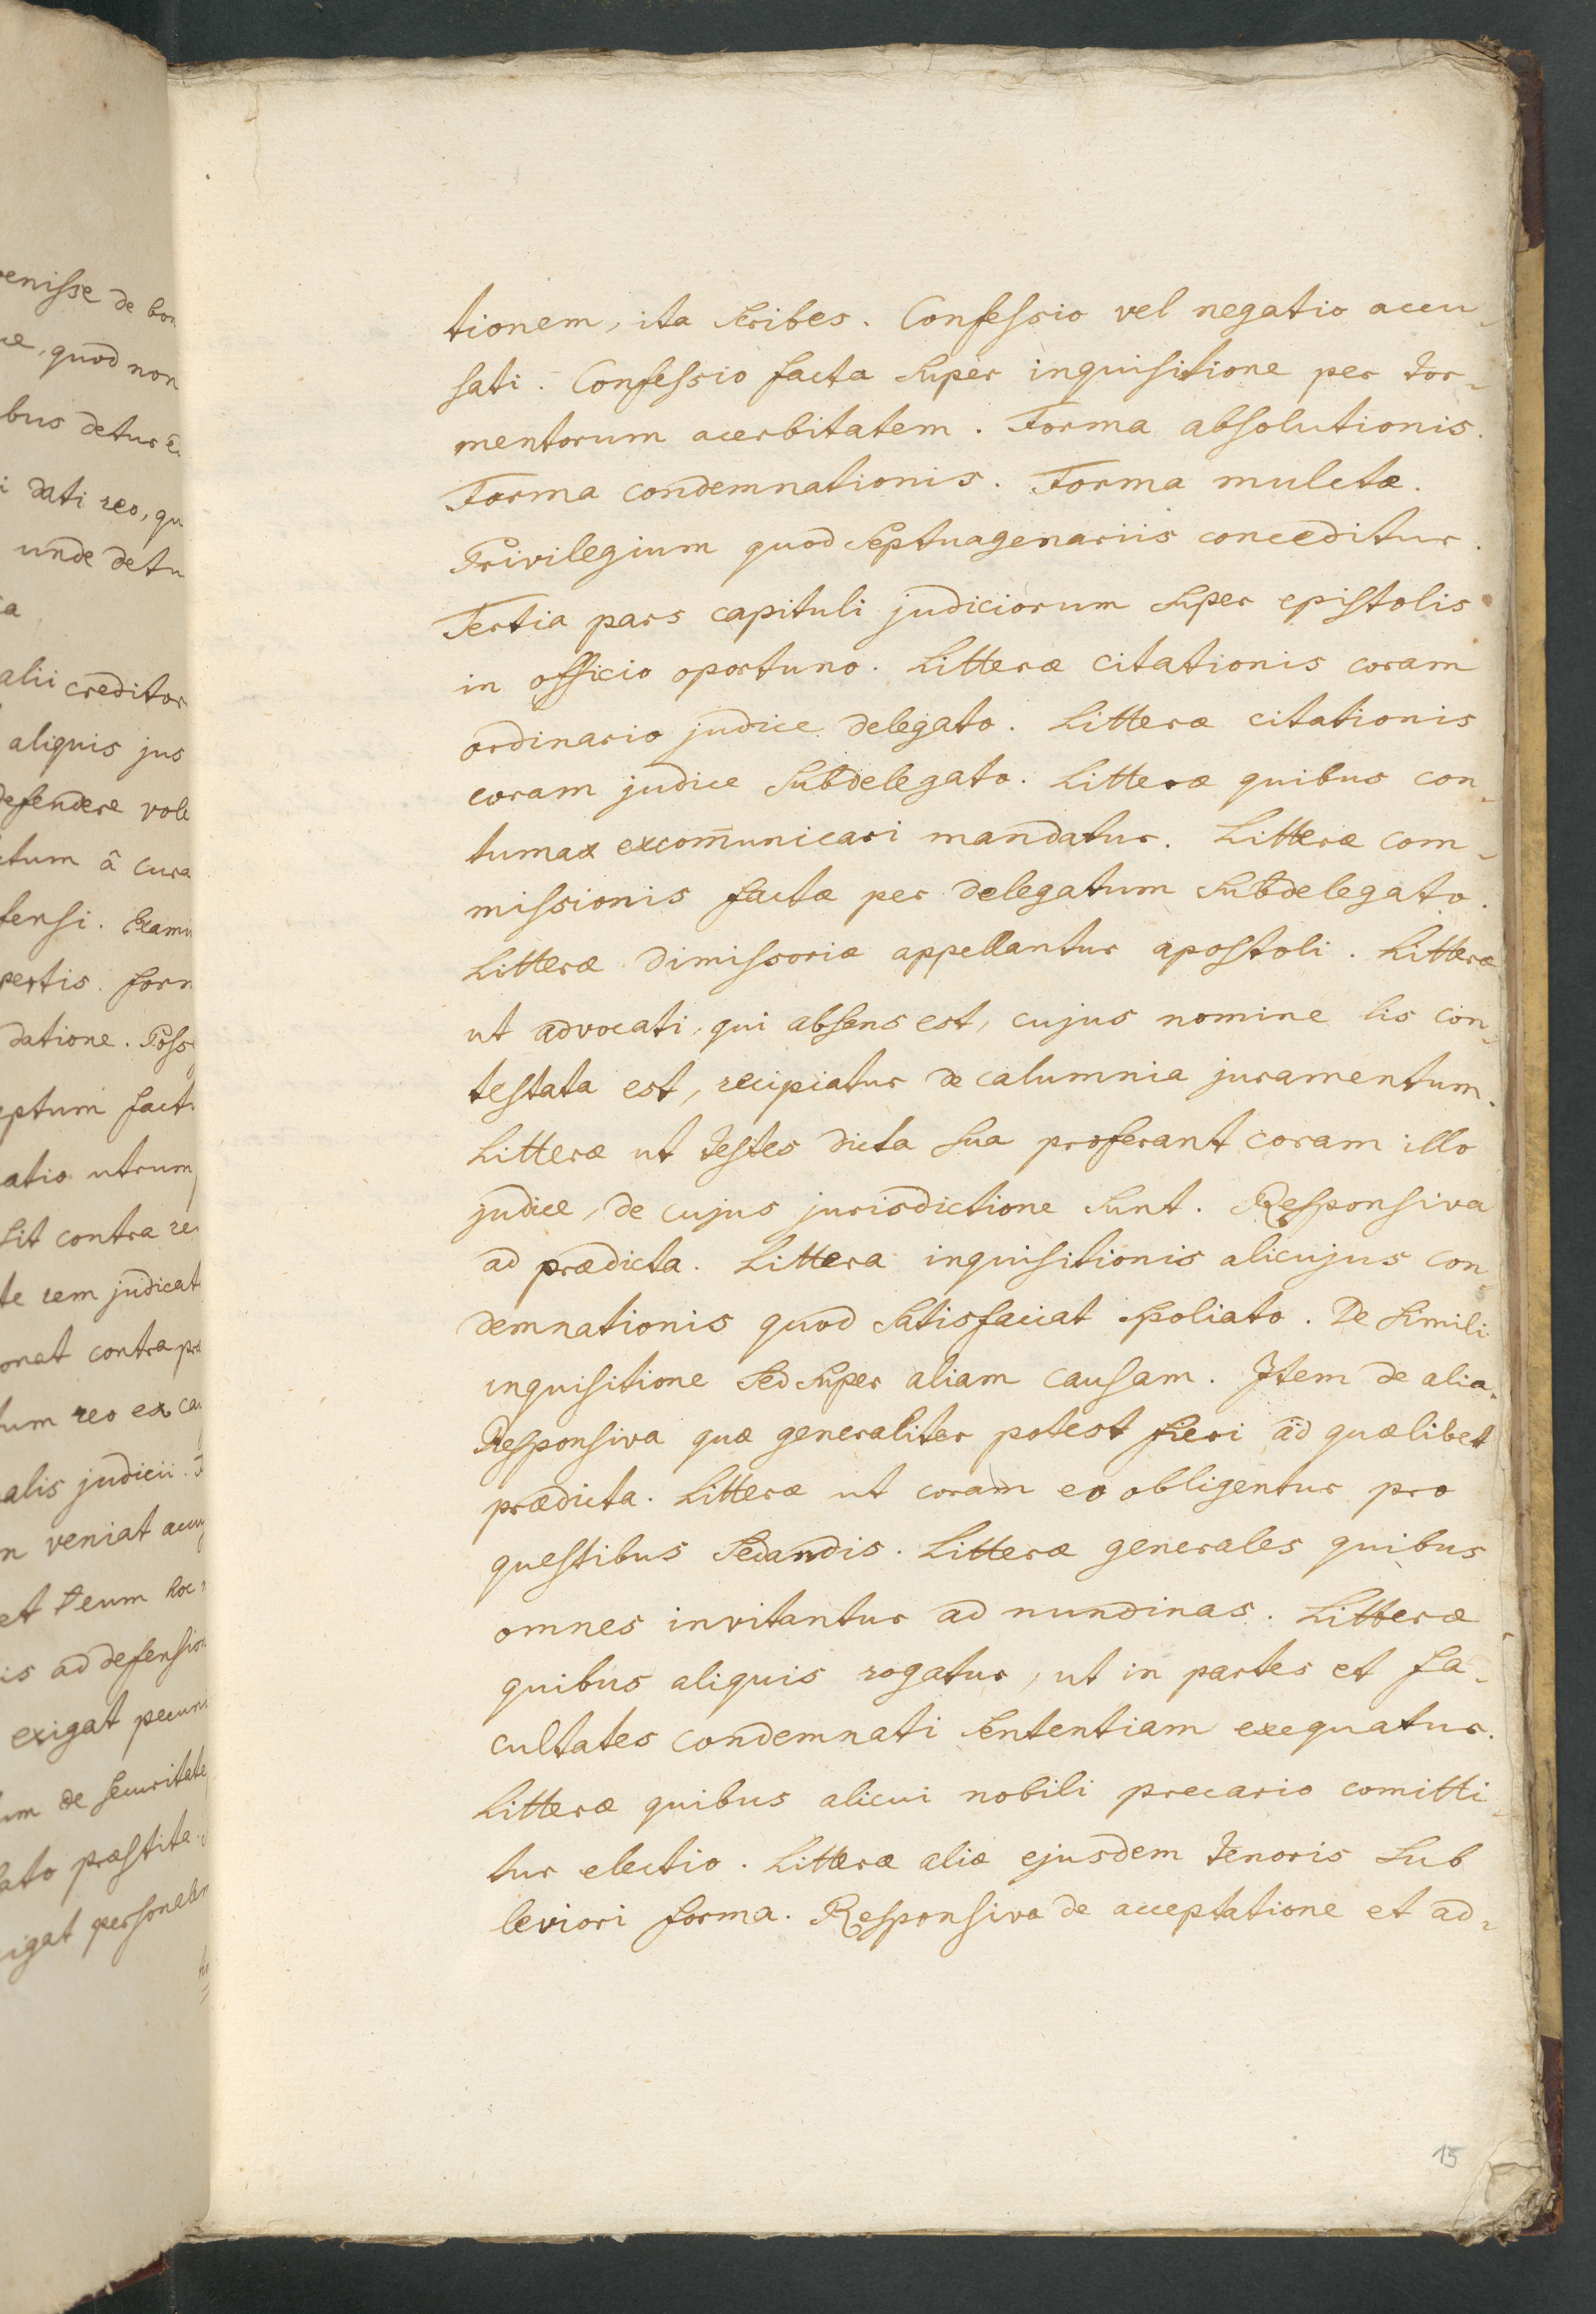 venisse de bon
quod non
bus detur
dati reo, qu
unde detu
alii creditor
aliquis jus
defendere vole
tum â cura
fensi. Exami
pertis. form
datione. Poss
ptum fact
atio utrum
sit contra re
te rem judicat
onat contra pra
tum reo ex ca
alis judicii.
n veniat accu
et reum hoc
is ad defension
exigat pecuni
um de securitate
ato præstita.
igat personalem
tionem, ita scribes. Confessio vel negatio accu-
sati. Confessio facta super inquisitione per tor-
mentorum acerbitatem. Forma absolutionis.
Forma condemnationis. Forma mulctæ.
Privilegium quod septuagenariis conceditur.
Tertia pars capituli judiciorum super epistolis
in officio oportuno. Litteræ citationis coram
ordinario judice delegato. Litteræ citationis
coram judice subdelegato. Litteræ quibus con-
tumax excom̄unicari mandatur. Litteræ com-
missionis factæ per delegatum subdelegato.
Litteræ dimissoriæ appellantur apostoli. Litteræ
ut advocati, qui absens est, cujus nomine lis con-
testata est, recipiatur de calumnia juramentum.
Litteræ ut testes dicta sua proferant coram illo
judice, de cujus jurisdictione sunt. Responsiva
ad prædicta. Littera inquisitionis alicujus con-
demnationis quod satisfaciat spoliato. De simili
inquisitione sed super aliam causam. Item de alia.
Responsiva quæ generaliter potest fieri ad quælibet
prædicta. Litteræ ut coram eo obligentur pro
questibus sedandis. Litteræ generales quibus
omnes invitantur ad nundinas. Litteræ
quibus aliquis rogatur, ut in partes et fa-
cultates condemnati sententiam exequatur.
Litteræ quibus alicui nobili precario comitti-
tur electio. Litteræ aliæ ejusdem tenoris sub
leviori forma. Responsiva de acceptatione et ad-
15